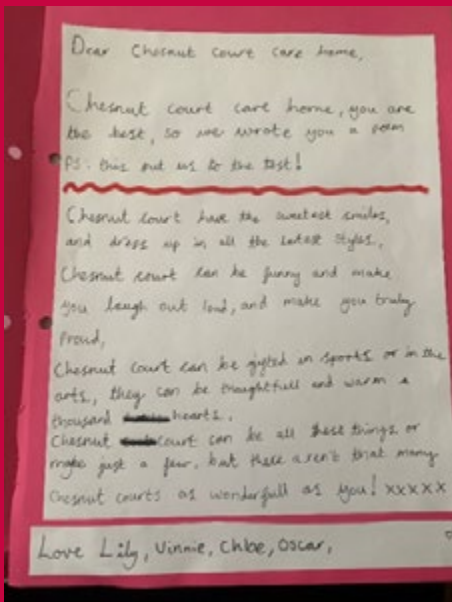 Dear Chesnut court care home,
Chesnut court care home, you are
the best, so we wrote you a poem
PS. this put us to the test!
Chesnut court have the sweetest smiles,
and dress up in all the latest styles,
Chesnut court can be funny and make
you laugh out loud, and make you truly
Proud,
Chesnut court can be gifted in sports or in the
arts, they can be thoughtfull and warm a
thousand hearts.
Chesnut court can be all these things or
might just a few, but there aren't that many
Chesnut courts as wonderfull as you! xxxxx
Love Lily, Vinnie, Chloe, Oscar,